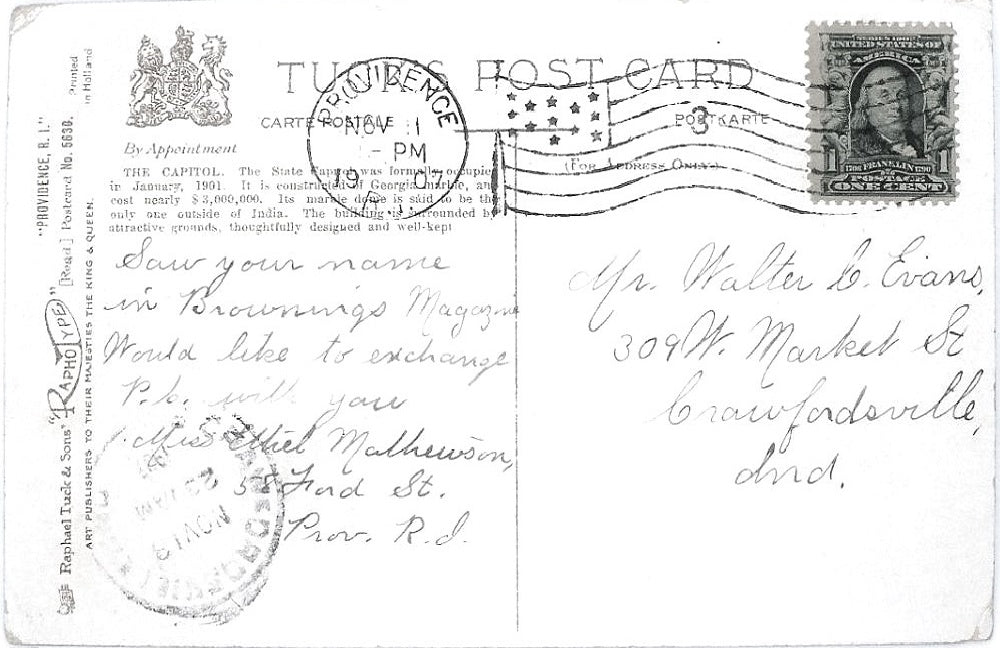 TUCK'S POST CARD
CARTE POSTALE
POSTKARTE
(FOR ADDRESS ONLY)
By Appointment
THE CAPITOL. The State Capitol was formally occupied
in January, 1901. It is constructed of Georgia marble, and
cost nearly $3,000,000. Its marble dome is said to be the
only one outside of India. The building is surrounded by
attractive grounds, thoughtfully designed and well-kept
PROVIDENCE
NOV 1
PM
3
SERIES 1902
UNITED STATES OF
AMERICA
1706 FRANKLIN 1790
1 POSTAGE 1
ONE CENT
Saw your name
in Brownings Magazine
Would like to exchange
P.c. with you
Miss Ethel Mathewson,
58 Ford St.
Prov. R.I.
Mr. Walter C. Evans,
309 W. Market St
Crawfordsville,
Ind.
"PROVIDENCE, R. I." Printed
in Holland
Raphael Tuck & Sons' "RAPHOTYPE" [Regd.] Postcard No. 5636.
ART PUBLISHERS TO THEIR MAJESTIES THE KING & QUEEN.
NOV
AM